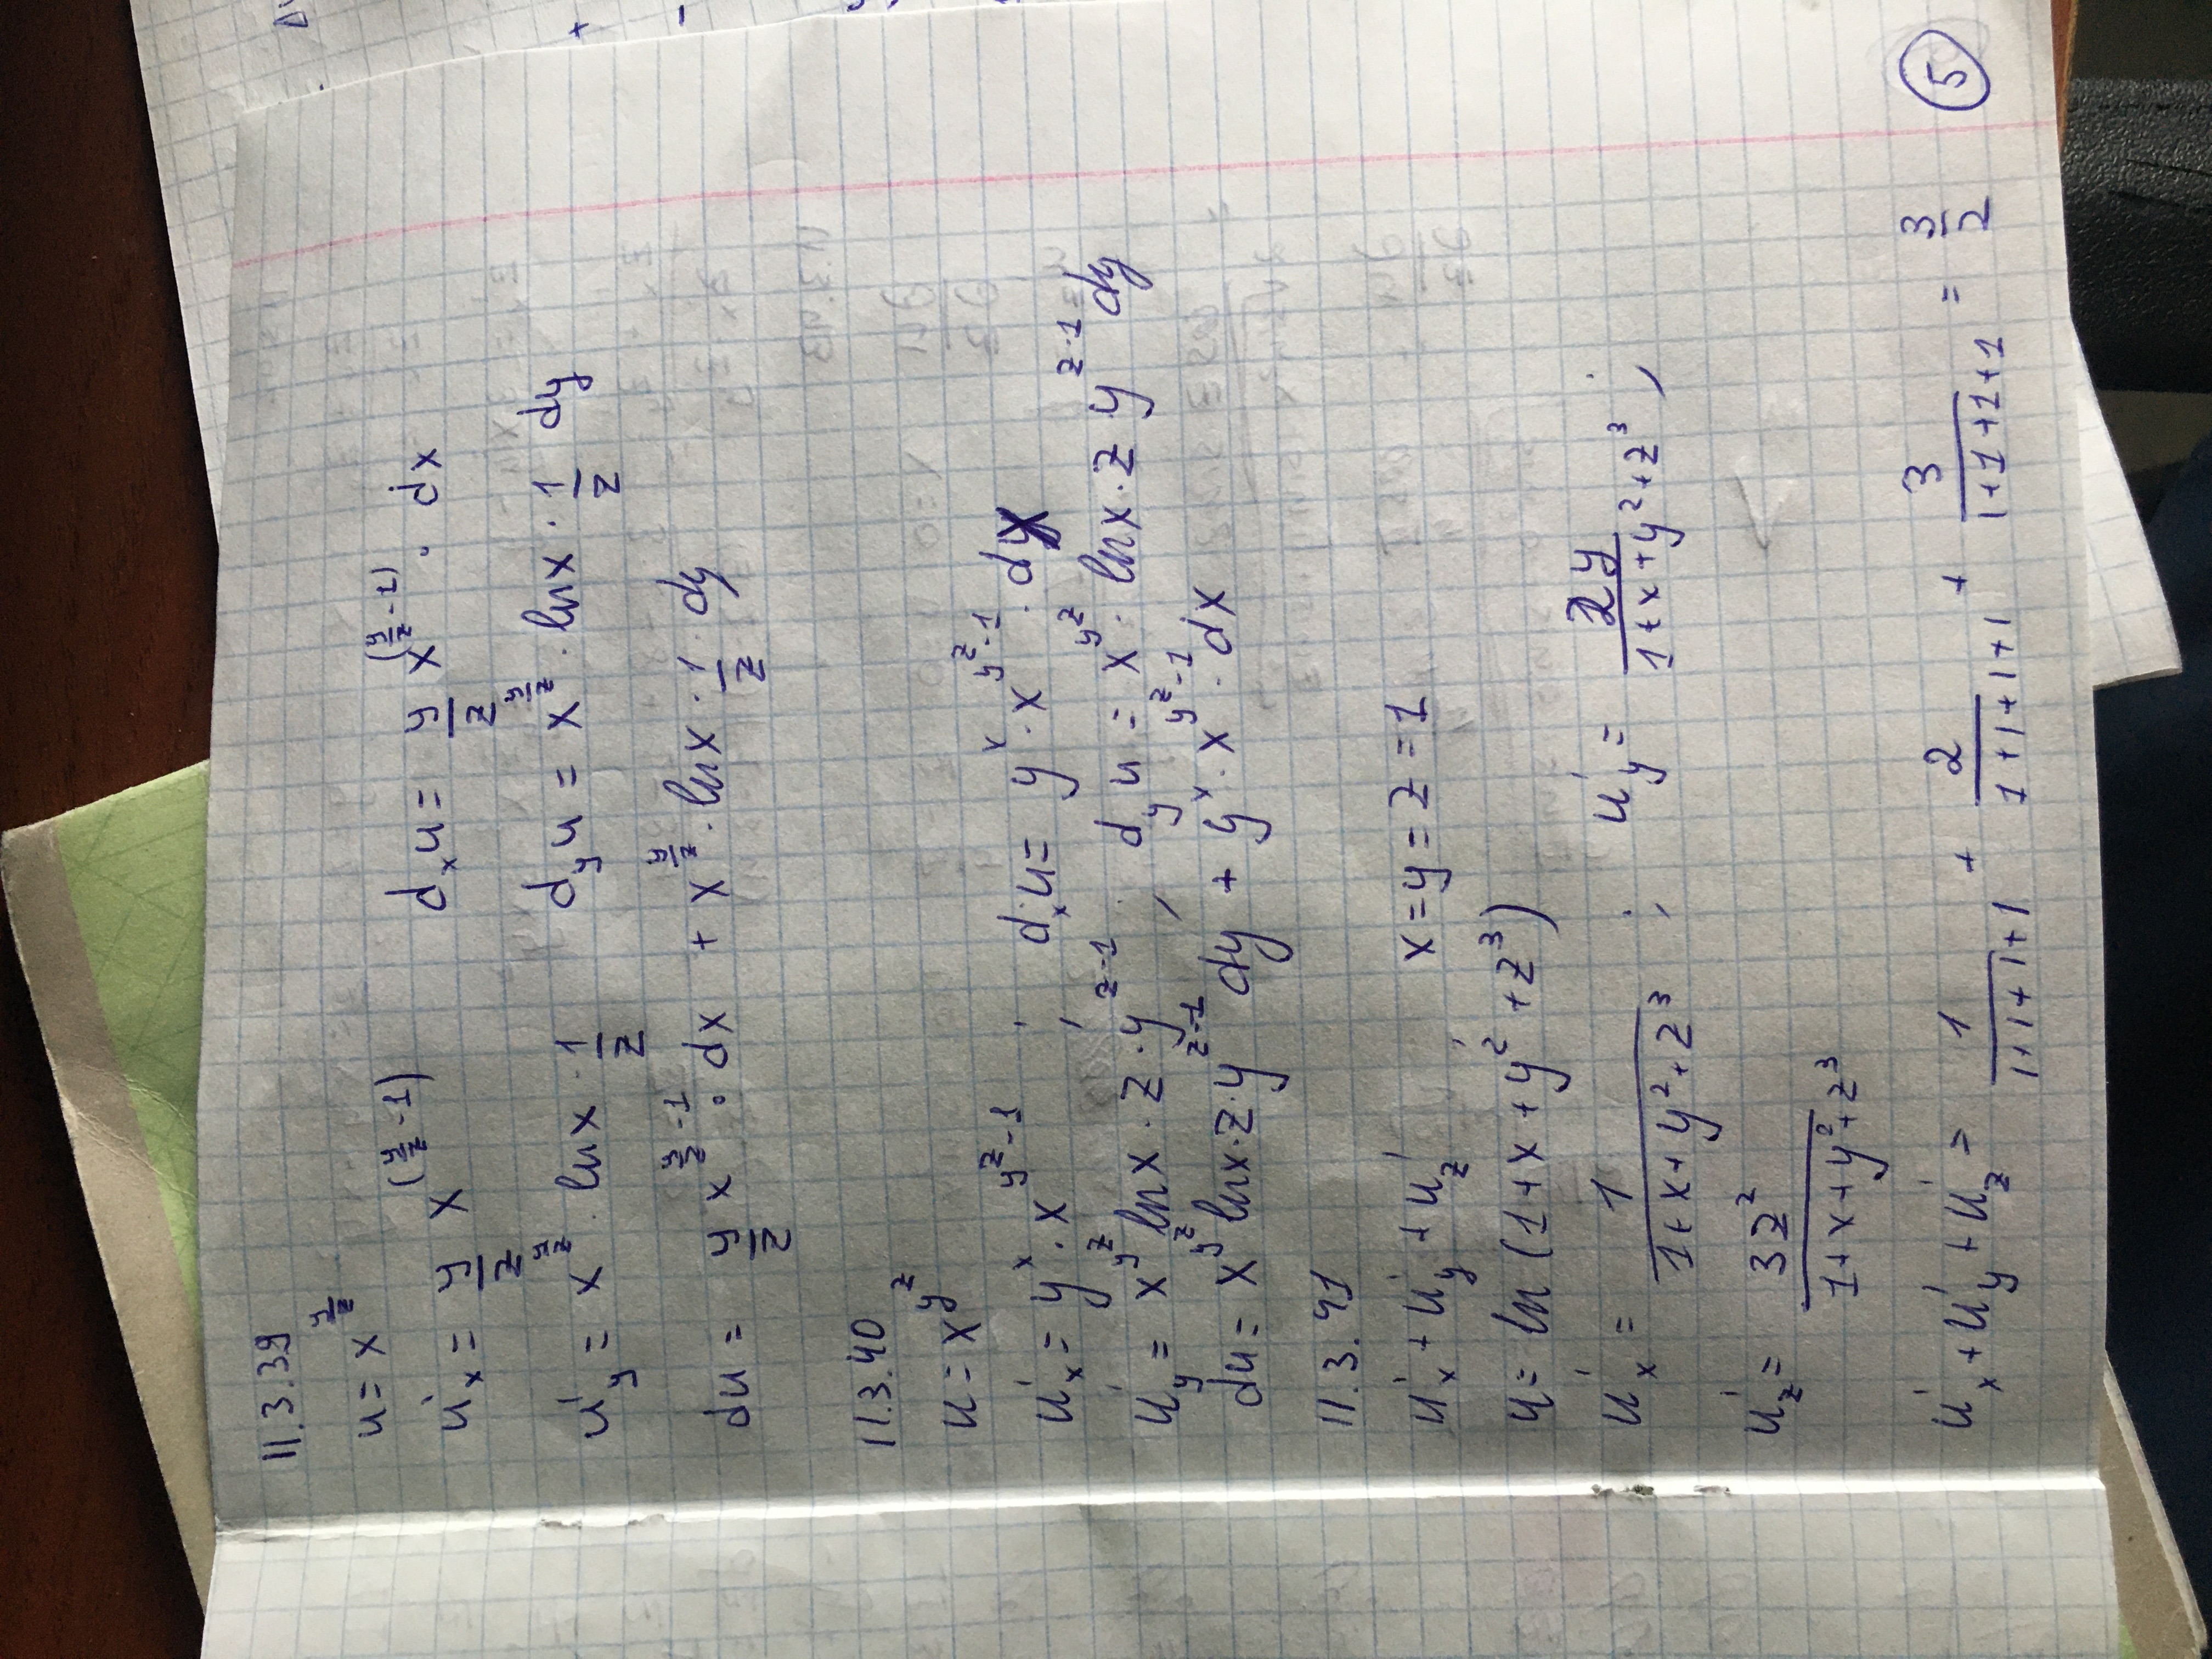 11.3.39
u = x^(y/z)
u'_x = y/z x^(y/z - 1)    d_x u = y/z x^(y/z - 1) · dx
u'_y = x^(y/z) · ln x · 1/z    d_y u = x^(y/z) · ln x · 1/z dy
du = y/z x^(y/z - 1) · dx + x^(y/z) · ln x · 1/z · dy
11.3.40
u = x^(y^z)
u'_x = y^x · x^(y^z - 1) ; d_x u = y^x · x^(y^z - 1) · dx
u'_y = x^(y^z) ln x · z · y^(z-1) , d_y u = x^(y^z) · ln x · z y^(z-1) dy
du = x^(y^z) ln x · z · y^(z-1) dy + y^x · x^(y^z - 1) · dx
11.3.41
u'_x + u'_y + u'_z , x = y = z = 1
u = ln (1 + x + y^2 + z^3)
u'_x = 1/(1 + x + y^2 + z^3) ; u'_y = 2y/(1 + x + y^2 + z^3) ;
u'_z = 3z^2/(1 + x + y^2 + z^3)
u'_x + u'_y + u'_z = 1/(1+1+1+1) + 2/(1+1+1+1) + 3/(1+1+1+1) = 3/2    5